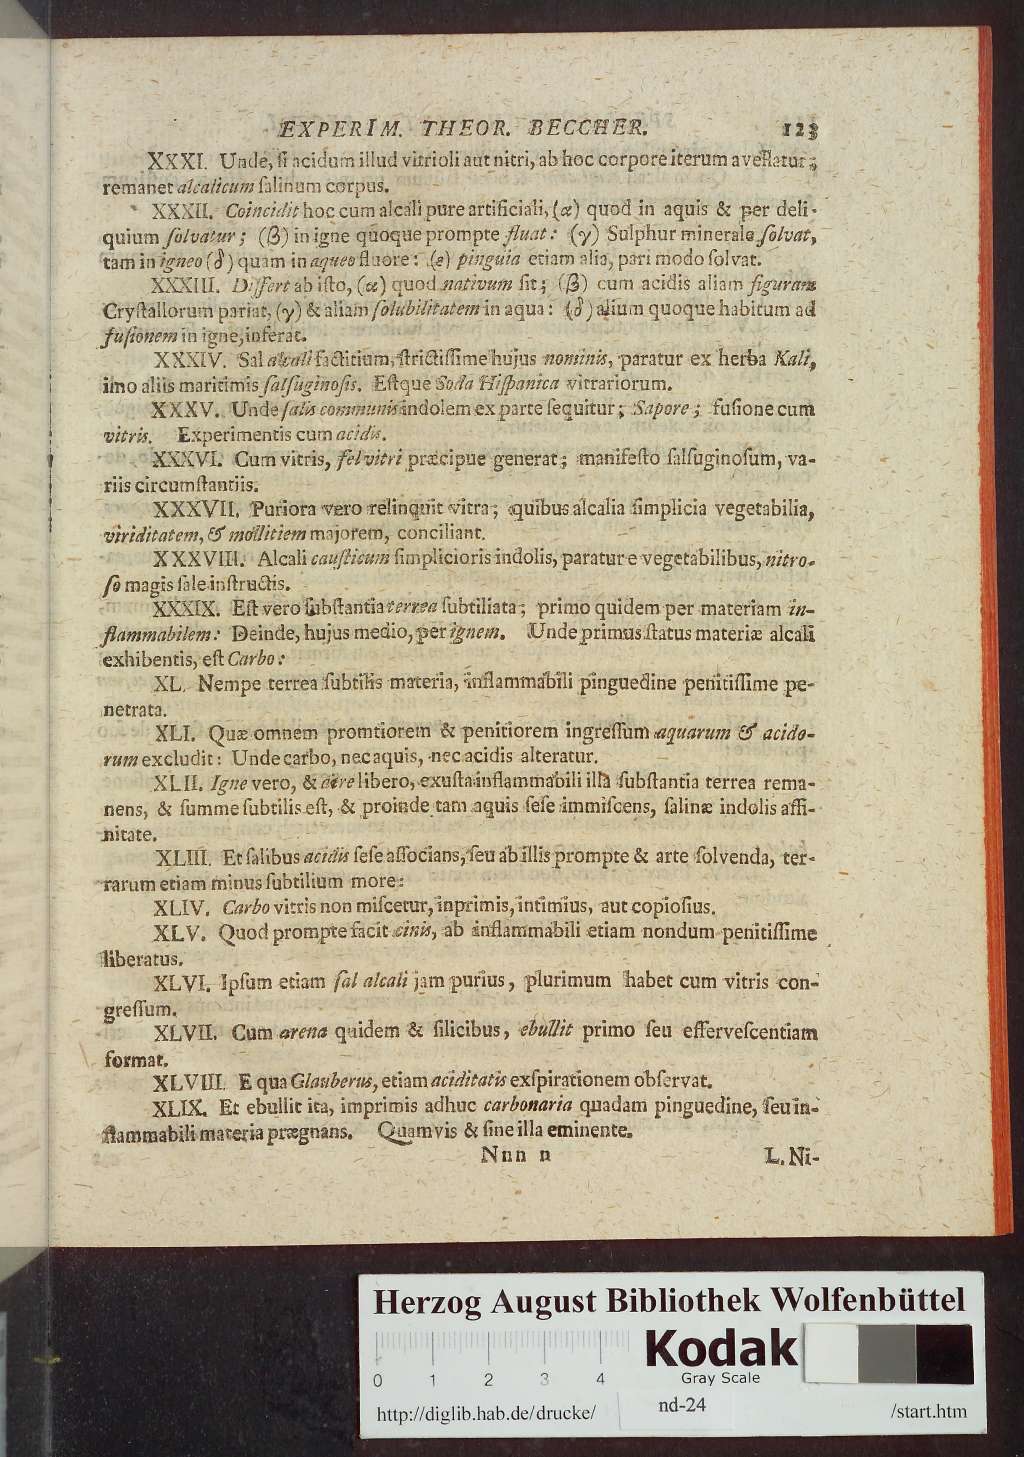 EXPERIM. THEOR. BECCHER. 123
XXXI. Unde, ſi acidum illud vitrioli aut nitri, ab hoc corpore iterum avellatur;
remanet alcalicum ſalinum corpus.
XXXII. Coincidit hoc cum alcali pure artificiali, (α) quod in aquis & per deli-
quium ſolvatur; (β) in igne quoque prompte fluat: (γ) Sulphur minerale ſolvat,
tam in igneo (δ) quam in aqueo fluore: (ε) pinguia etiam alia, pari modo ſolvat.
XXXIII. Differt ab iſto, (α) quod nativum ſit; (β) cum acidis aliam figuram
Cryſtallorum pariat, (γ) & aliam ſolubilitatem in aqua: (δ) alium quoque habitum ad
fuſionem in igne, inferat.
XXXIV. Sal alcali factitium, ſtrictiſſime hujus nominis, paratur ex herba Kali,
imo aliis maritimis ſalſuginoſis. Eſtque Soda Hiſpanica vitrariorum.
XXXV. Unde ſalis communis indolem ex parte ſequitur; Sapore; fuſione cum
vitris. Experimentis cum acidis.
XXXVI. Cum vitris, fel vitri præcipue generat; manifeſto ſalſuginoſum, va-
riis circumſtantiis.
XXXVII. Puriora vero relinquit vitra; quibus alcalia ſimplicia vegetabilia,
viriditatem, & mollitiem majorem, conciliant.
XXXVIII. Alcali cauſticum ſimplicioris indolis, paratur e vegetabilibus, nitro-
ſo magis ſale inſtructis.
XXXIX. Eſt vero ſubſtantia terrea ſubtiliata; primo quidem per materiam in-
flammabilem: Deinde, hujus medio, per ignem. Unde primus ſtatus materiæ alcali
exhibentis, eſt Carbo:
XL. Nempe terrea ſubtilis materia, inflammabili pinguedine penitiſſime pe-
netrata.
XLI. Quæ omnem promtiorem & penitiorem ingreſſum aquarum & acido-
rum excludit: Unde carbo, nec aquis, nec acidis alteratur.
XLII. Igne vero, & aëre libero, exuſta inflammabili illa ſubſtantia terrea rema-
nens, & ſumme ſubtilis eſt, & proinde tam aquis ſeſe immiſcens, ſalinæ indolis affi-
nitate.
XLIII. Et ſalibus acidis ſeſe aſſocians, ſeu ab illis prompte & arte ſolvenda, ter-
rarum etiam minus ſubtilium more:
XLIV. Carbo vitris non miſcetur, inprimis, intimius, aut copioſius.
XLV. Quod prompte facit cinis, ab inflammabili etiam nondum penitiſſime
liberatus.
XLVI. Ipſum etiam ſal alcali jam purius, plurimum habet cum vitris con-
greſſum.
XLVII. Cum arena quidem & ſilicibus, ebullit primo ſeu efferveſcentiam
format.
XLVIII. E qua Glauberus, etiam aciditatis exſpirationem obſervat.
XLIX. Et ebullit ita, imprimis adhuc carbonaria quadam pinguedine, ſeu in-
flammabili materia prægnans. Quamvis & ſine illa eminente.
Nnn n L. Ni-
Herzog August Bibliothek Wolfenbüttel
Kodak
Gray Scale
0 1 2 3 4
http://diglib.hab.de/drucke/ nd-24 /start.htm